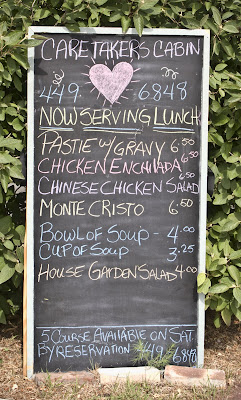 CARETAKERS CABIN
449 6848
NOW SERVING LUNCH
PASTIE W/GRAVY 6.50
CHICKEN ENCHILADA 6.50
CHINESE CHICKEN SALAD 6.50
MONTE CRISTO 6.50
BOWL OF SOUP - 4.00
CUP OF SOUP 3.25
HOUSE GARDEN SALAD 4.00
5 COURSE AVAILABLE ON SAT.
BY RESERVATION 449 6848